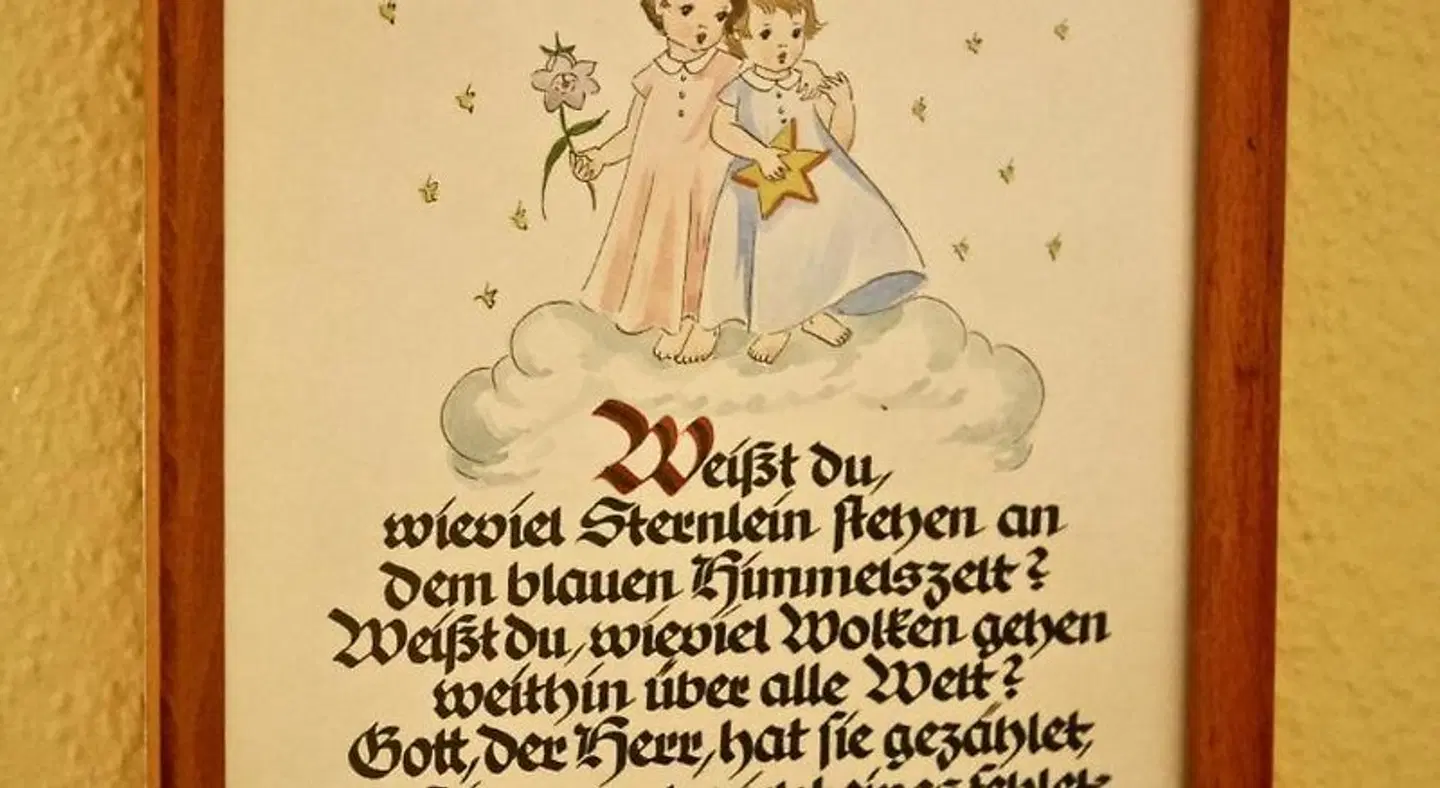 Weißt du,
wieviel Sternlein stehen an
dem blauen Himmelszelt?
Weißt du, wieviel Wolken gehen
weithin über alle Welt?
Gott, der Herr, hat sie gezählet,
eines fehlet